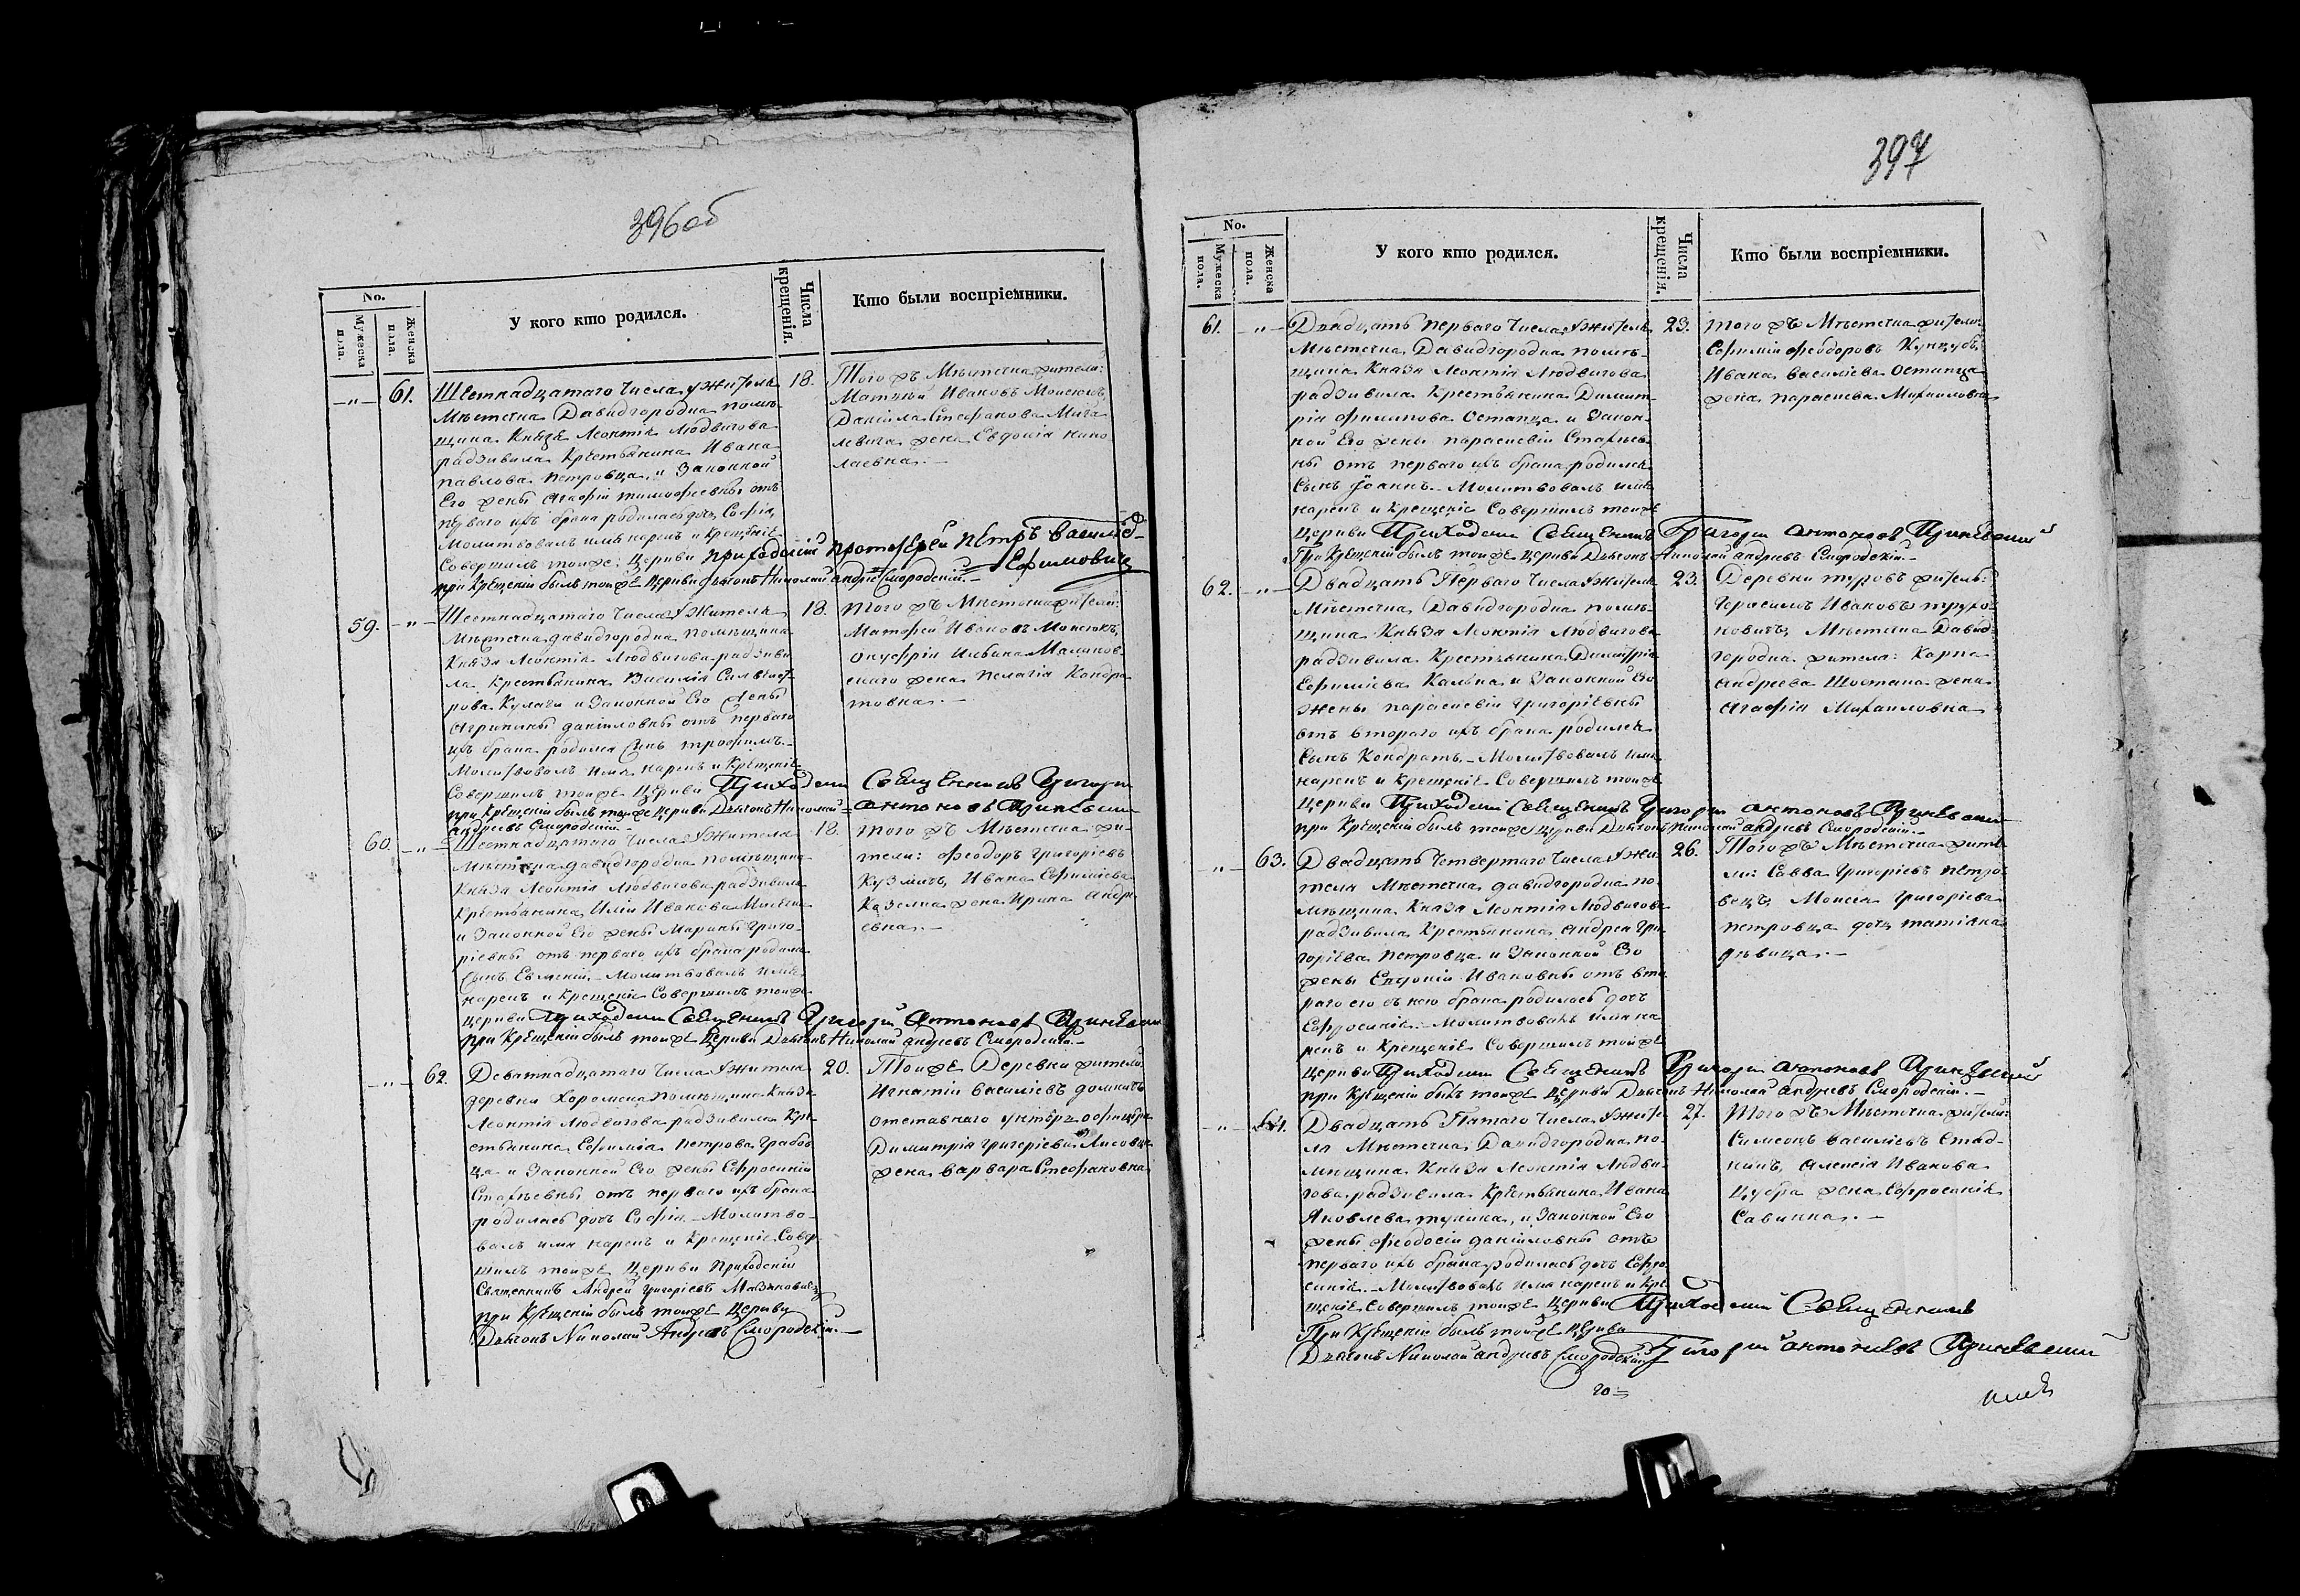 396 об
No.
Мужеска пола.
Женска пола.
У кого кто родился.
Числа крещенія.
Кто были воспріемники.
61.
Шестнадцатаго числа у жителя
Мѣстечка Давидгородка помѣ-
щика Князя Леонтія Людвигова
радзивила Крестьянина Ивана
павлова петровца, и Законной
Его жены Агафіи тимофеевны отъ
перваго ихъ брака родилась дочь Софія,
Молитвовалъ имя нарекъ и Крещеніе
Совершилъ тоиже Церкви приходскій протоіерей петръ василіе-
при Крещеніи былъ тоиже Церкви дьяконъ Николай андреевъ Смородскій.
18.
Того жъ Мѣстечка жители:
Матѳей Ивановъ Моисюкъ,
Даніила Стефанова
жена Евдокія нико
лаевна.
59.
Шестнадцатаго числа у жителя
Мѣстечка давидгородка помѣщика
Князя Леонтія Людвигова радзиви
ла Крестьянина Василія Сильвест-
рова Кулаги и Законной Его жены
Агрипины даніиловны отъ перваго
ихъ брака родился Сынъ трофимъ.
Молитвовалъ имя нарекъ и Крещеніе
Совершилъ тоиже Церкви Приходскій Священникъ Григорій
при Крещеніи былъ тоиже Церкви Дьяконъ Николай
андреевъ Смородскій.
18.
того жъ Мѣстечка жители:
Матфей Ивановъ Моисюкъ,
онуфрія Ильина Малинов-
скаго жена пелагія Кондра
товна.
60.
Шестнадцатаго числа у жителя
Мѣстечка давидгородка помѣщика
Князя Леонтія Людвигова радзивила
Крестьянина Иліи Иванова
и Законной Его жены Марины Григо-
ріевны отъ перваго ихъ брака родился
Сынъ Евменій. Молитвовалъ имя
нарекъ и Крещеніе Совершилъ тоиже
Церкви Приходскій Священникъ Григорій Антоновъ
при Крещеніи былъ тоиже Церкви Дьяконъ Николай андреевъ Смородскій.
18.
того жъ Мѣстечка жи-
тели: Феодоръ григоріевъ
Кузмичъ, Ивана Ефиміева
жена Ирина Андре
евна.
62.
Девятнадцатаго числа у жителя
деревни Хоромска помѣщика Князя
Леонтія Людвигова радзивила Кре
стьянина Ефиміа петрова Грабов
ца и Законной Его жены Ефросиніи
Стахѣевны отъ перваго ихъ брака
родилась дочь Софія. Молитво-
валъ имя нарекъ и Крещеніе Совер
шилъ тоиже Церкви Приходскій
Священникъ Андрей григоріевъ
при Крещеніи былъ тоиже Церкви
Дьяконъ Николай Андреевъ Смородскій.
20.
Тоиже Деревни жители:
Игнатій василіевъ
отставнаго унтеръ офицера
Димитрія григоріева Лисовца
жена варвара Стефановна
397
No.
Мужеска пола.
Женска пола.
У кого кто родился.
Числа крещенія.
Кто были воспріемники.
61.
Двадцать перваго числа у жителя
Мѣстечка Давидгородка помѣ-
щика Князя Леонтія Людвигова
радзивила Крестьянина Димит-
рія филипова Остапца и Закон-
ной Его жены параскевіи Стахѣев
ны отъ перваго ихъ брака родился
Сынъ Іоаннъ. Молитвовалъ имя
нарекъ и Крещеніе Совершилъ тоиже
Церкви Приходскій Священникъ Григорій Антоновъ
При Крещеніи былъ тоиже Церкви Дьяконъ Николай андреевъ Смородскій.
23.
того жъ Мѣстечка жители:
Ефимій феодоровъ
Ивана василіева Остапца
жена параскева Михаиловна
62.
Двадцать Перваго числа у жителя
Мѣстечка Давидгородка помѣ-
щика Князя Леонтія Людвигова
радзивила Крестьянина Димитрія
Ефиміева и Законной Его
жены параскевіи григоріевны
отъ втораго ихъ брака родился
Сынъ Кондратъ. Молитвовалъ имя
нарекъ и Крещеніе Совершилъ тоиже
Церкви Приходскій Священникъ Григорій антоновъ
при Крещеніи былъ тоиже Церкви Дьяконъ Николай андреевъ Смородскій.
23.
Деревни туровъ житель:
Герасимъ Ивановъ
Мѣстечка Давид-
городка жителя: Карпа
Андреева Шостака жена
Агафія Михаиловна
63.
Двадцать Четвертаго числа у жи-
теля Мѣстечка давидгородка по-
мѣщика Князя Леонтія Людвигова
радзивила Крестьянина андрея Гри
горіева петровца и Законной Его
жены Евдокіи Ивановны отъ вто
раго его съ нею брака родилась дочь
Ефросинія. Молитвовалъ имя на
рекъ и Крещеніе Совершилъ тоиже
Церкви Приходскій Священникъ Григорій антоновъ
при Крещеніи былъ тоиже Церкви Дьяконъ Николай андреевъ Смородскій.
26.
Того жъ Мѣстечка жите
ли: Савва Григоріевъ петро
вецъ, Моисея григоріева
петровца дочь татіана
дѣвица.
64.
Двадцать Пятаго числа у жите
ля Мѣстечка Давидгородка по-
мѣщика Князя Леонтія Людви
гова радзивила Крестьянина Ивана
Яковлева и Законной Его
жены феодосіи даніиловны отъ
перваго ихъ брака родилась дочь Ефро
синія. Молитвовалъ имя нарекъ и Кре
щеніе Совершилъ тоиже Церкви Приходскій Священникъ
При Крещеніи былъ тоиже Церкви
Дьяконъ Николай андреевъ Смородскій
27.
того жъ Мѣстечка жители:
Симеонъ василіевъ
Алексія Иванова
жена Ефросинія
Савична.